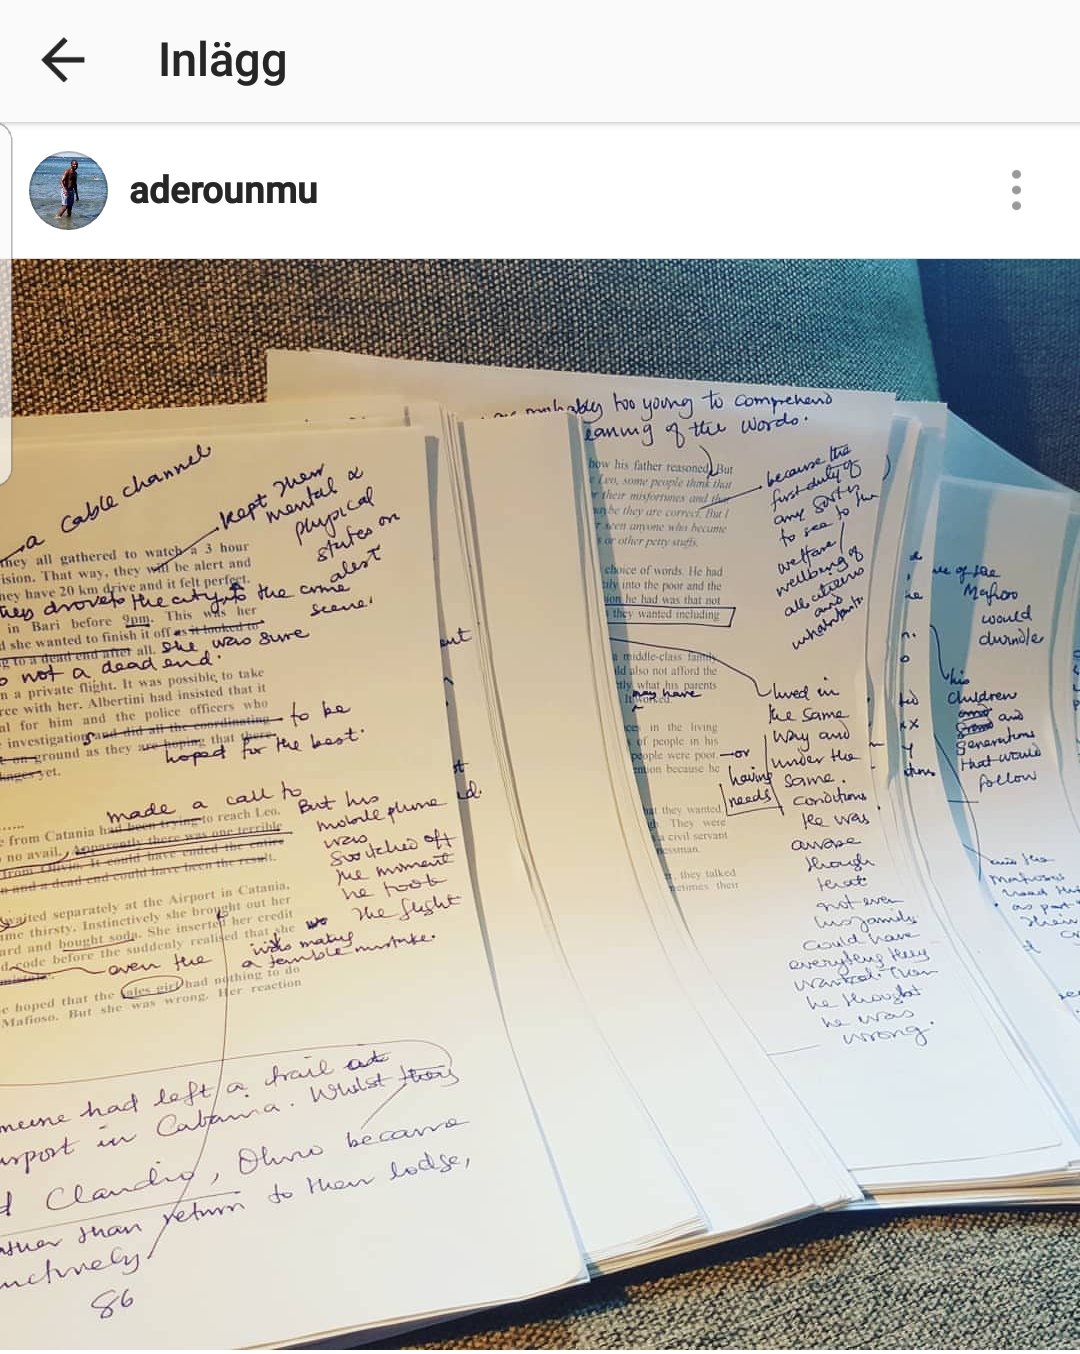 Inlägg
aderounmu
a cable channel
kept their
mental &
physical
states on
alert
they all gathered to watch a 3 hour
ision. That way, they will be alert and
hey have 20 km drive and it felt perfect.
they drove to the city, to the crime
scene.
in Bari before 9pm. This was her
d she wanted to finish it off as it looked to
g to a dead end after all. She was sure
not a dead end.
n a private flight. It was possible to take
rce with her. Albertini had insisted that it
al for him and the police officers who
investigations and did all the coordinating to be
t on ground as they are hoping that there
hoped for the best.
hages yet.
made a call to
But his
mobile phone
was
switched off
the moment
he took
the flight
e from Catania had been trying to reach Leo.
no avail. Apparently there was one terrible
from Olivio. It could have ended the entire
n and a dead end could have been the result.
waited separately at the Airport in Catania.
me thirsty. Instinctively she brought out her
ard and bought soda. She inserted her credit
d code before the suddenly realised that she
mistake. even the
was making
a terrible mistake.
e hoped that the sales girl had nothing to do
Mafioso. But she was wrong. Her reaction
meone had left a trail at
airport in Catania. Whilst they
d Claudio, Olivio became
ather than return to their lodge,
inctively
86
probably too young to comprehend
eaning of the words.
how his father reasoned. But
Leo, some people think that
r their misfortunes and that
aybe they are correct. But I
r seen anyone who became
s or other petty stuffs.
because the
first duty of
any
to see to the
welfare/
wellbeing of
all citizens
and
choice of words. He had
ily into the poor and the
ion he had was that not
they wanted including
a middle-class family
ld also not afford the
tly what his parents
may have
It worked.
lived in
the same
way and
under the
same
conditions.
He was
aware
though
that
not even
his family
could have
everything they
wanted. Then
he thought
he was
wrong.
ces in the living
of people in his
people were poor — or
ention because he
having
needs
hat they wanted
gh. They were
a civil servant
nessman.
r, they talked
metimes their
ue of the
Mafioso
would
dwindle
his
children
and
generations
that would
follow